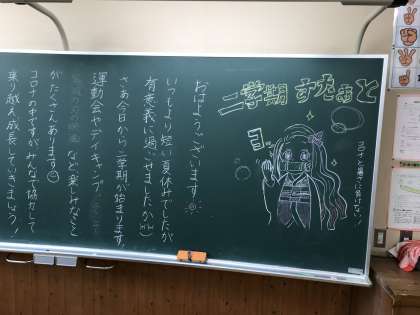 二学期 すたぁと
コロナと暑さに負けない!
ヨッ
おはようございます。
いつもより短い夏休みでしたが
有意義に過ごせましたか?
さあ今日から二学期が始まります。
運動会やデイキャンプ
など楽しみなこと
がたくさんあります
コロナの中ですがみんなで協力して
乗り越え成長していきましょう!